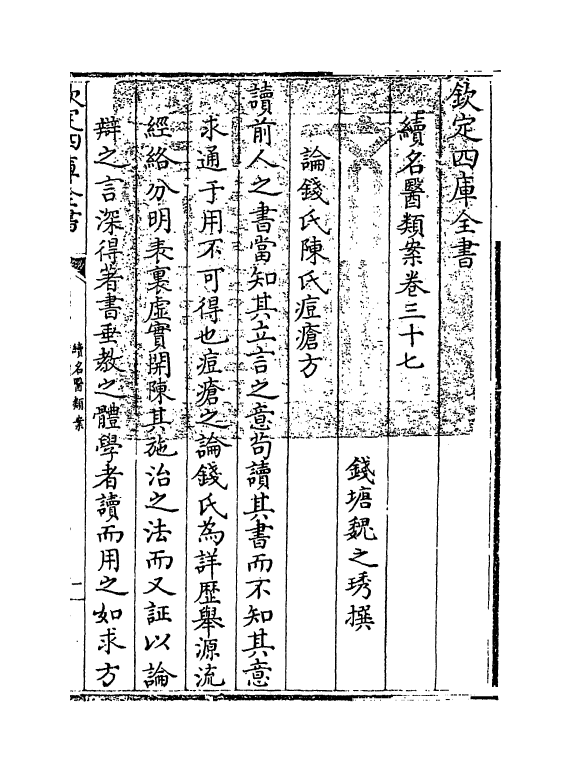 欽定四庫全書
續名醫類案卷三十七
錢塘魏之琇撰
論錢氏陳氏痘瘡方
讀前人之書當知其立言之意苟讀其書而不知其意
求通于用不可得也痘瘡之論錢氏為詳歴舉源流
經絡分明表裏虛實開陳其施治之法而又証以論
辯之言深得著書垂教之體學者讀而用之如求方
欽定四庫全書
續名醫類案
一